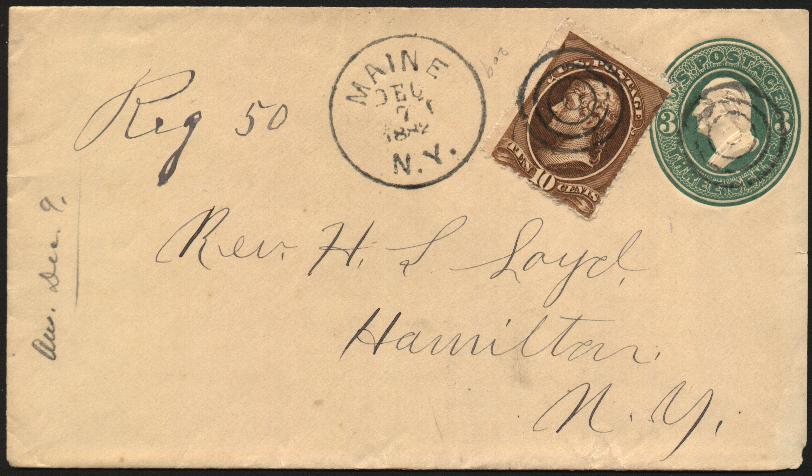 MAINE
DEC
7
N.Y.
U.S. POSTAGE
TEN 10 CENTS
U.S. POSTAGE
3 3
THREE CENTS
Reg 50
Rev. H. L. Loyd,
Hamilton,
N. Y.
Ans. Dec. 9,